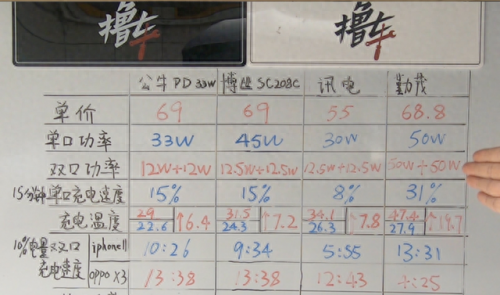 撸车 撸车
公牛PD33W 博世SC208C 讯电 勤茂
单价 69 69 55 68.8
单口功率 33W 45W 30W 50W
双口功率 12W+12W 12.5W+12.5W 12.5W+12.5W 50W+50W
15分钟单口充电速度 15% 15% 8% 31%
充电温度 29 22.6 ↑6.4 31.5 24.3 ↑7.2 34.1 26.3 ↑7.8 47.4 27.9 ↑19.7
10%电量双口充电速度 iphone11 10:26 9:34 5:55 13:31
oppo X3 13:38 13:38 12:43 :25